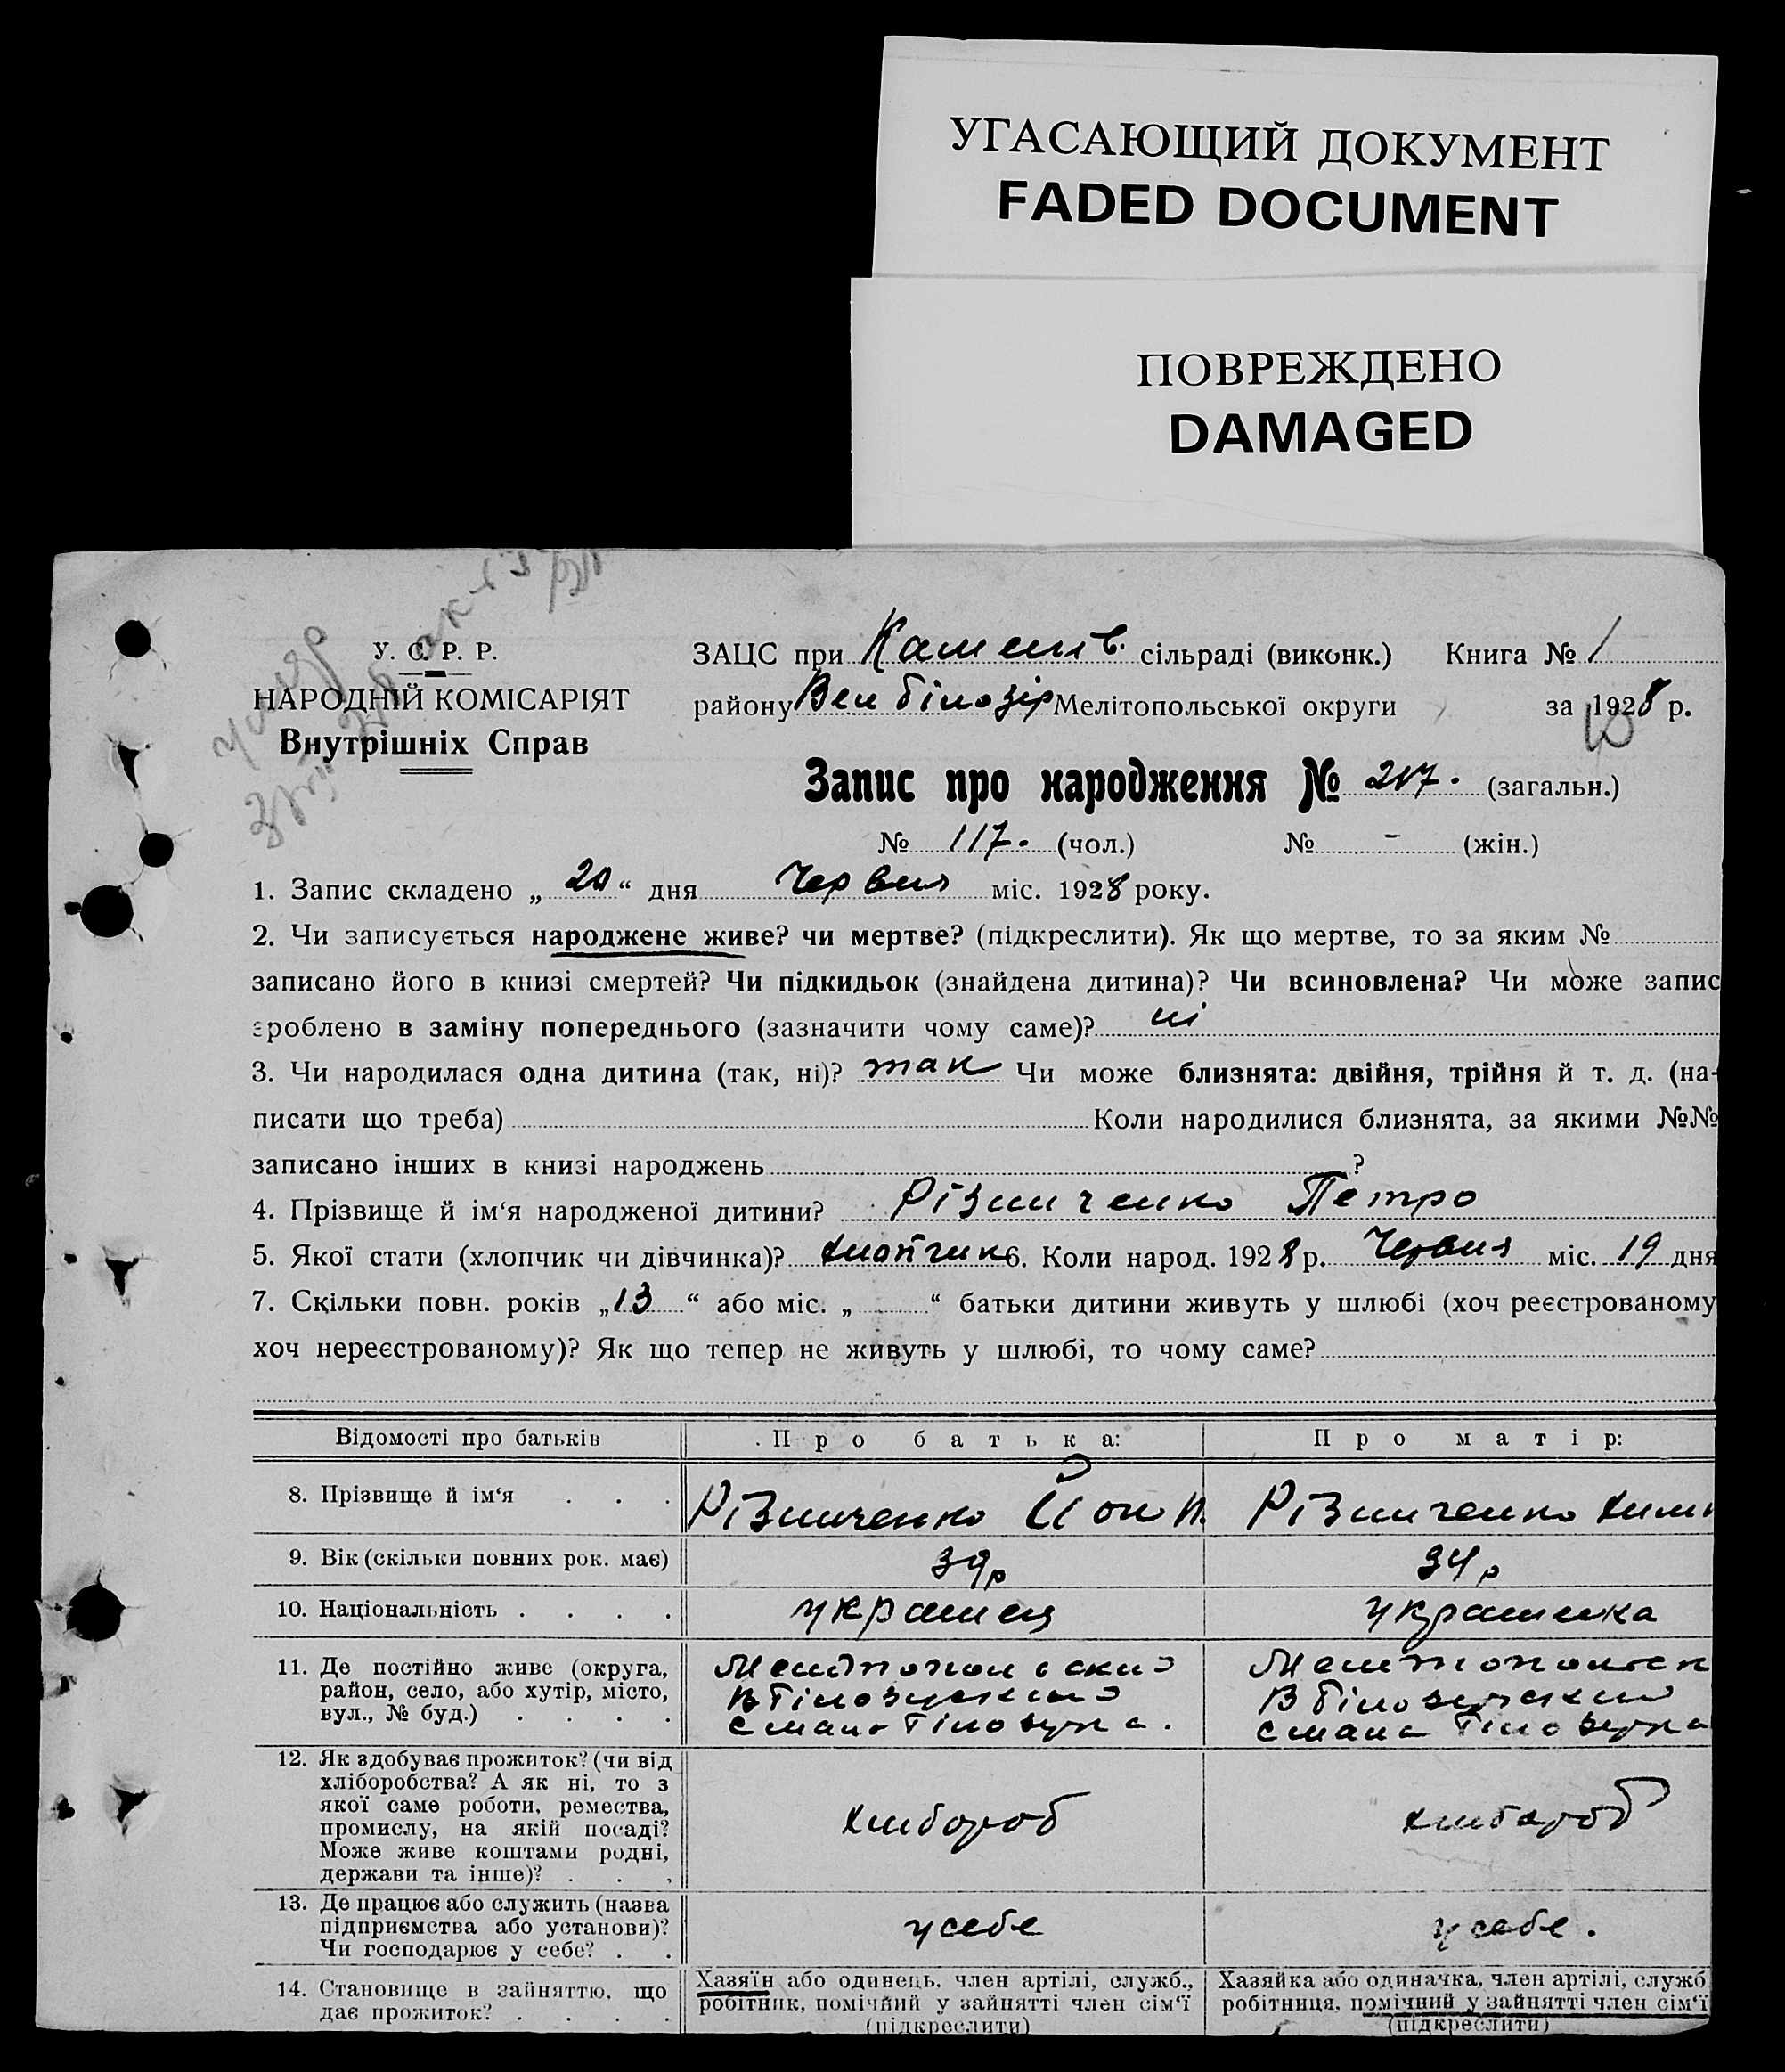 УГАСАЮЩИЙ ДОКУМЕНТ
FADED DOCUMENT
ПОВРЕЖДЕНО
DAMAGED
У. С. Р. Р.
НАРОДНІЙ КОМІСАРІЯТ
Внутрішніх Справ
ЗАЦС при Каменів. сільраді (виконк.) Книга № 1
району Вел білозір Мелітопольської округи за 1928 р.
Запис про народження № 217. (загальн.)
№ 117. (чол.) № - (жін.)
1. Запис складено „ 20 “ дня Червня міс. 1928 року.
2. Чи записується народжене живе? чи мертве? (підкреслити). Як що мертве, то за яким №
записано його в книзі смертей? Чи підкидьок (знайдена дитина)? Чи всиновлена? Чи може запис
зроблено в заміну попереднього (зазначити чому саме)? ні
3. Чи народилася одна дитина (так, ні)? так Чи може близнята: двійня, трійня й т. д. (на-
писати що треба) Коли народилися близнята, за якими №№
записано інших в книзі народжень ?
4. Прізвище й ім‘я народженої дитини? Різниченко Петро
5. Якої стати (хлопчик чи дівчинка)? хлопчик 6. Коли народ. 1928 р. Червня міс. 19 дня
7. Скільки повн. років „13“ або міс. „ “ батьки дитини живуть у шлюбі (хоч реєстрованому
хоч нереєстрованому)? Як що тепер не живуть у шлюбі, то чому саме?
Відомості про батьків Про батька: Про матір:
8. Прізвище й ім‘я . . . Різниченко Різниченко
9. Вік (скільки повних рок. має) 39р 34р
10. Національність . . . . украинец украинка
11. Де постійно живе (округа,
район, село, або хутір, місто,
вул., № буд.) . . . .
12. Як здобуває прожиток? (чи від
хліборобства? А як ні, то з
якої саме роботи, ремества,
промислу, на якій посаді?
Може живе коштами родні,
держави та інше)? . . .
хлибороб хлибороб
13. Де працює або служить (назва
підприємства або установи)?
Чи господарює у себе? . .
у себе у себе.
14. Становище в зайняттю, що
дає прожиток? . . . .
Хазяїн або одинець, член артілі, служб.,
робітник, помічний у зайнятті член сім‘ї
(підкреслити)
Хазяйка або одиначка, член артілі, служб
робітниця, помічний у зайнятті член сім‘ї
(підкреслити)